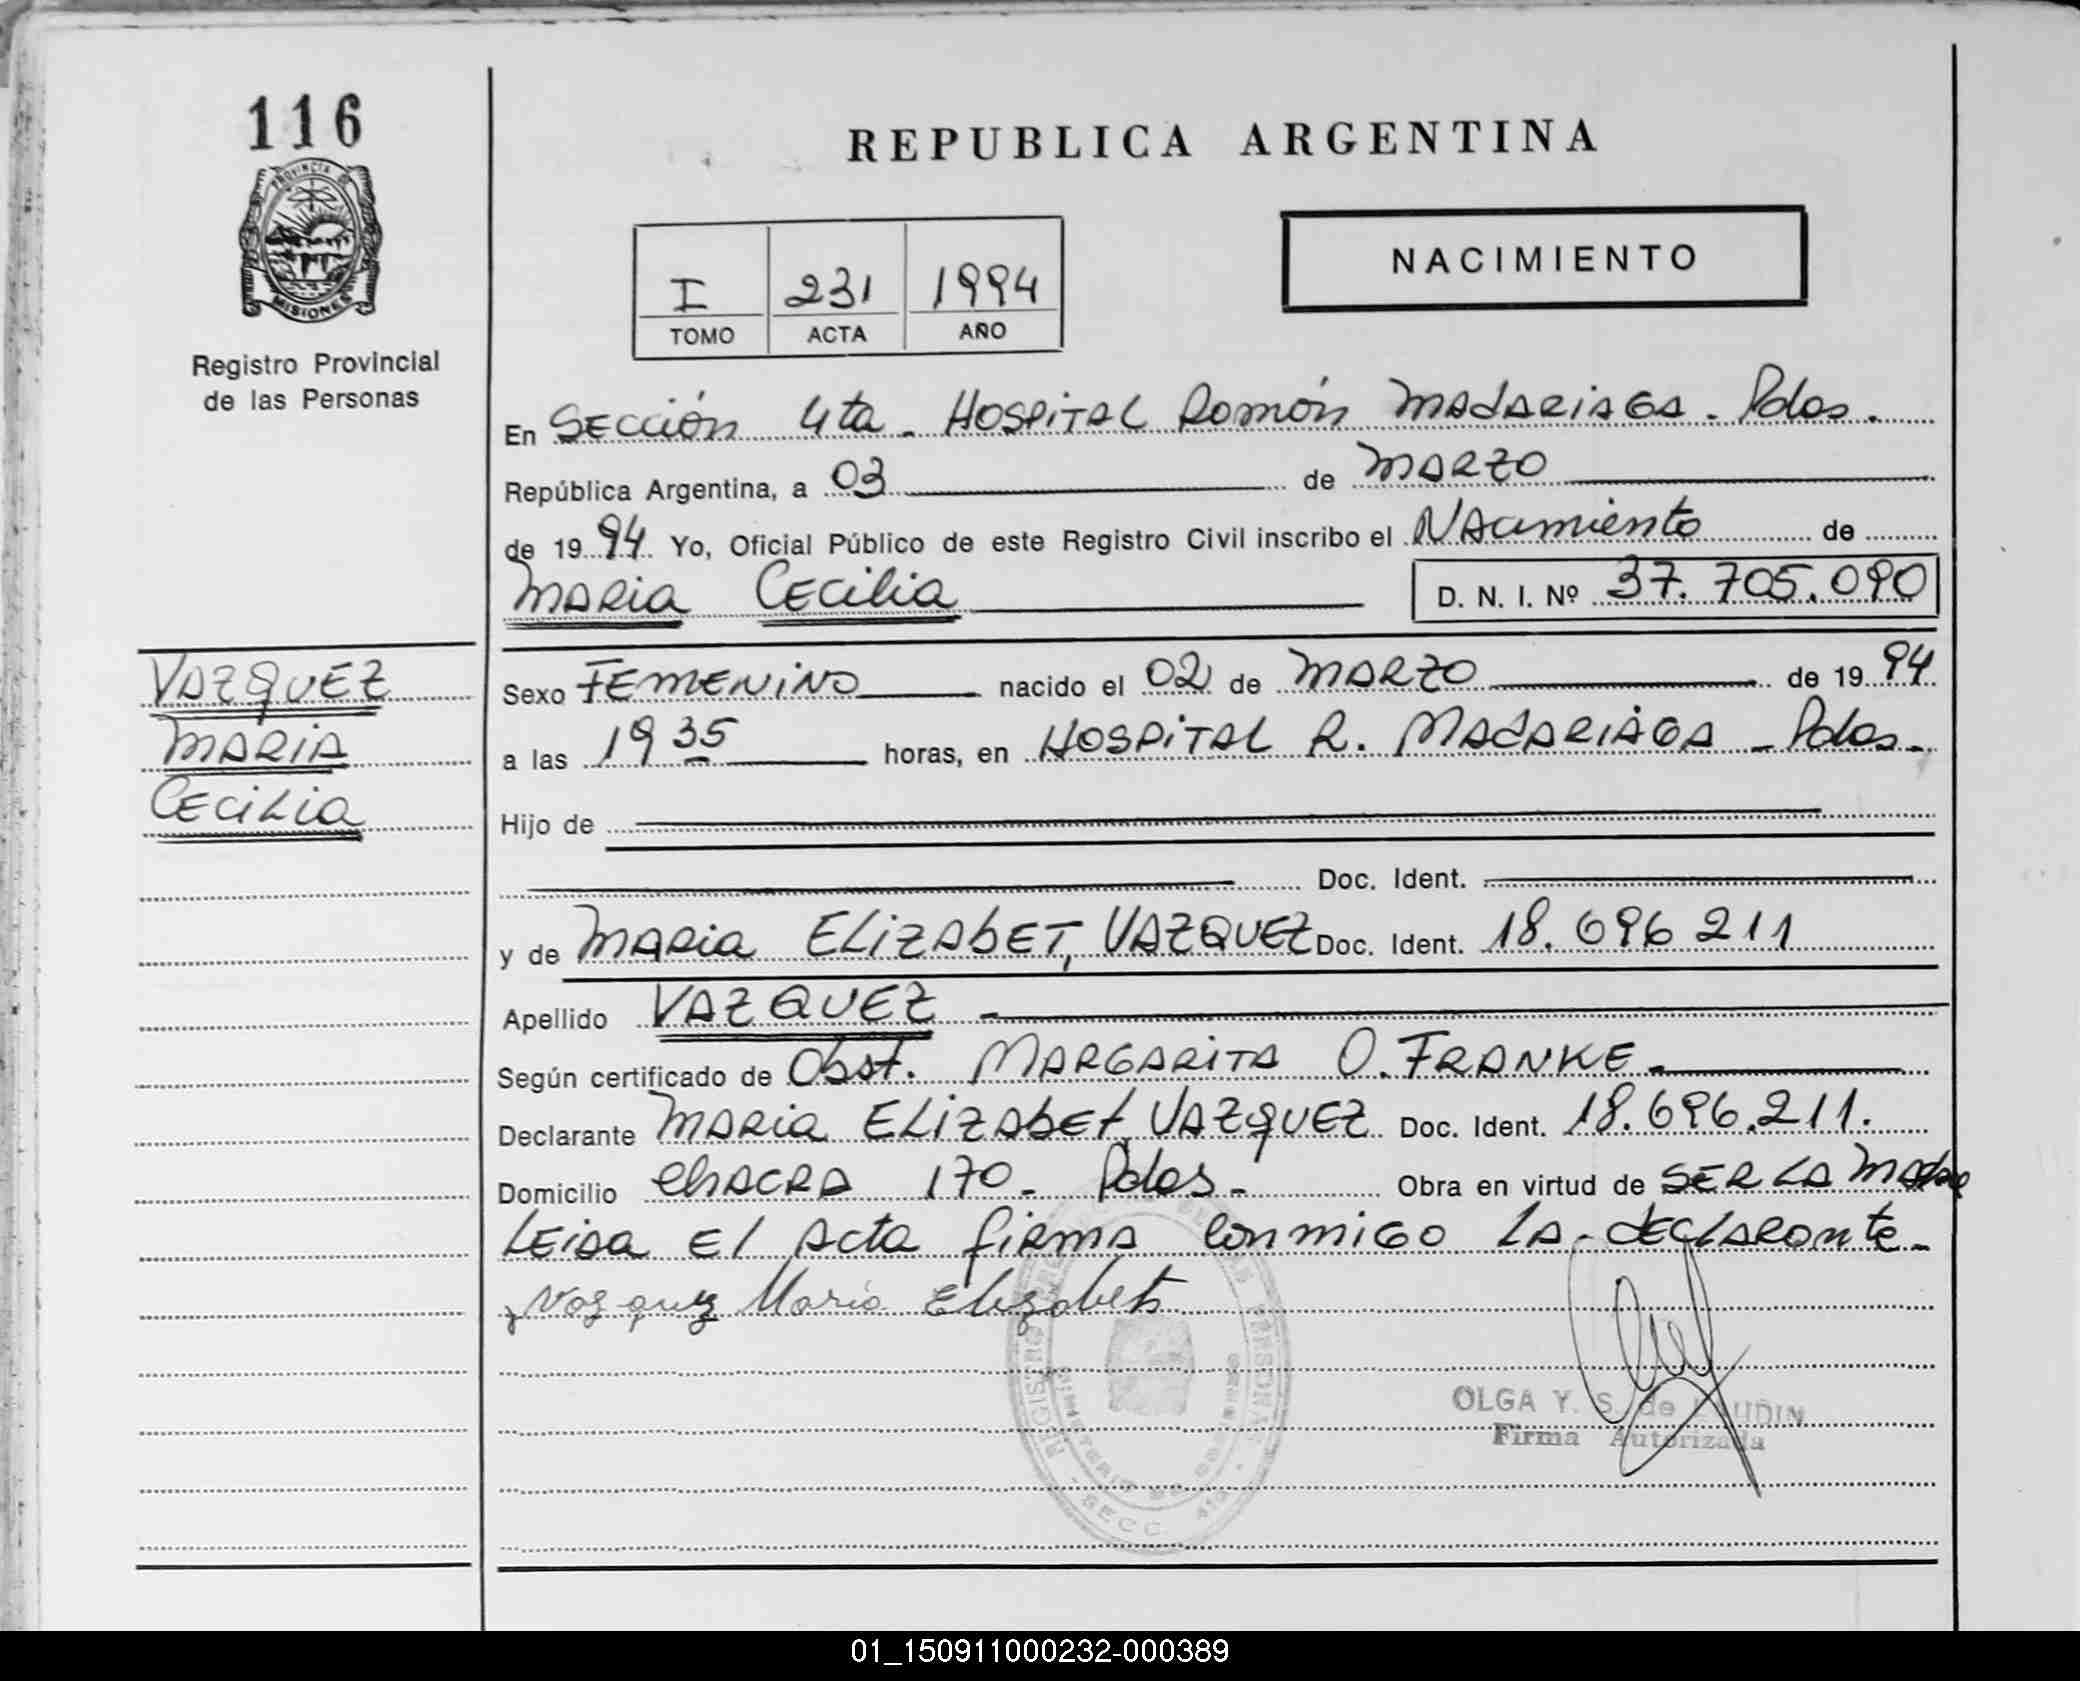 116
PROVINCIA DE
MISIONES
Registro Provincial
de las Personas
REPUBLICA ARGENTINA
NACIMIENTO
I 231 1994
TOMO ACTA AÑO
En SECCión 4ta - HOSPITAL Ramón MADARIAGA - Pdas.
República Argentina, a 03 de MARZO
de 1994 Yo, Oficial Público de este Registro Civil inscribo el NAcimiento de
MARiA CECiliA D. N. I. Nº 37.705.090
VAZQUEZ
MARIA
CECILIA
Sexo FEMENiNO nacido el 02 de MARZO de 1994
a las 19 35 horas, en HOSPiTAL R. MADARIAGA - Pdas -
Hijo de
Doc. Ident.
y de MARiA ELiZAbET, VAZQUEZ Doc. Ident. 18.696 211
Apellido VAZQUEZ
Según certificado de Obst. MARGARITA O. FRANKE -
Declarante MARIA ELIZAbEt VAZQUEZ Doc. Ident. 18.696.211.
Domicilio ChACRA 170 - Pdas - Obra en virtud de SER LA MAdre
LEiDA El Acta firmA conmiGO LA dEClARAnte -
Vazquez Maria Elizabet
REGISTRO PERSONAS
MINISTERIO DE GOBIERNO
SECC. 4ta.
OLGA Y. S. de
Firma Autorizada
01_150911000232-000389